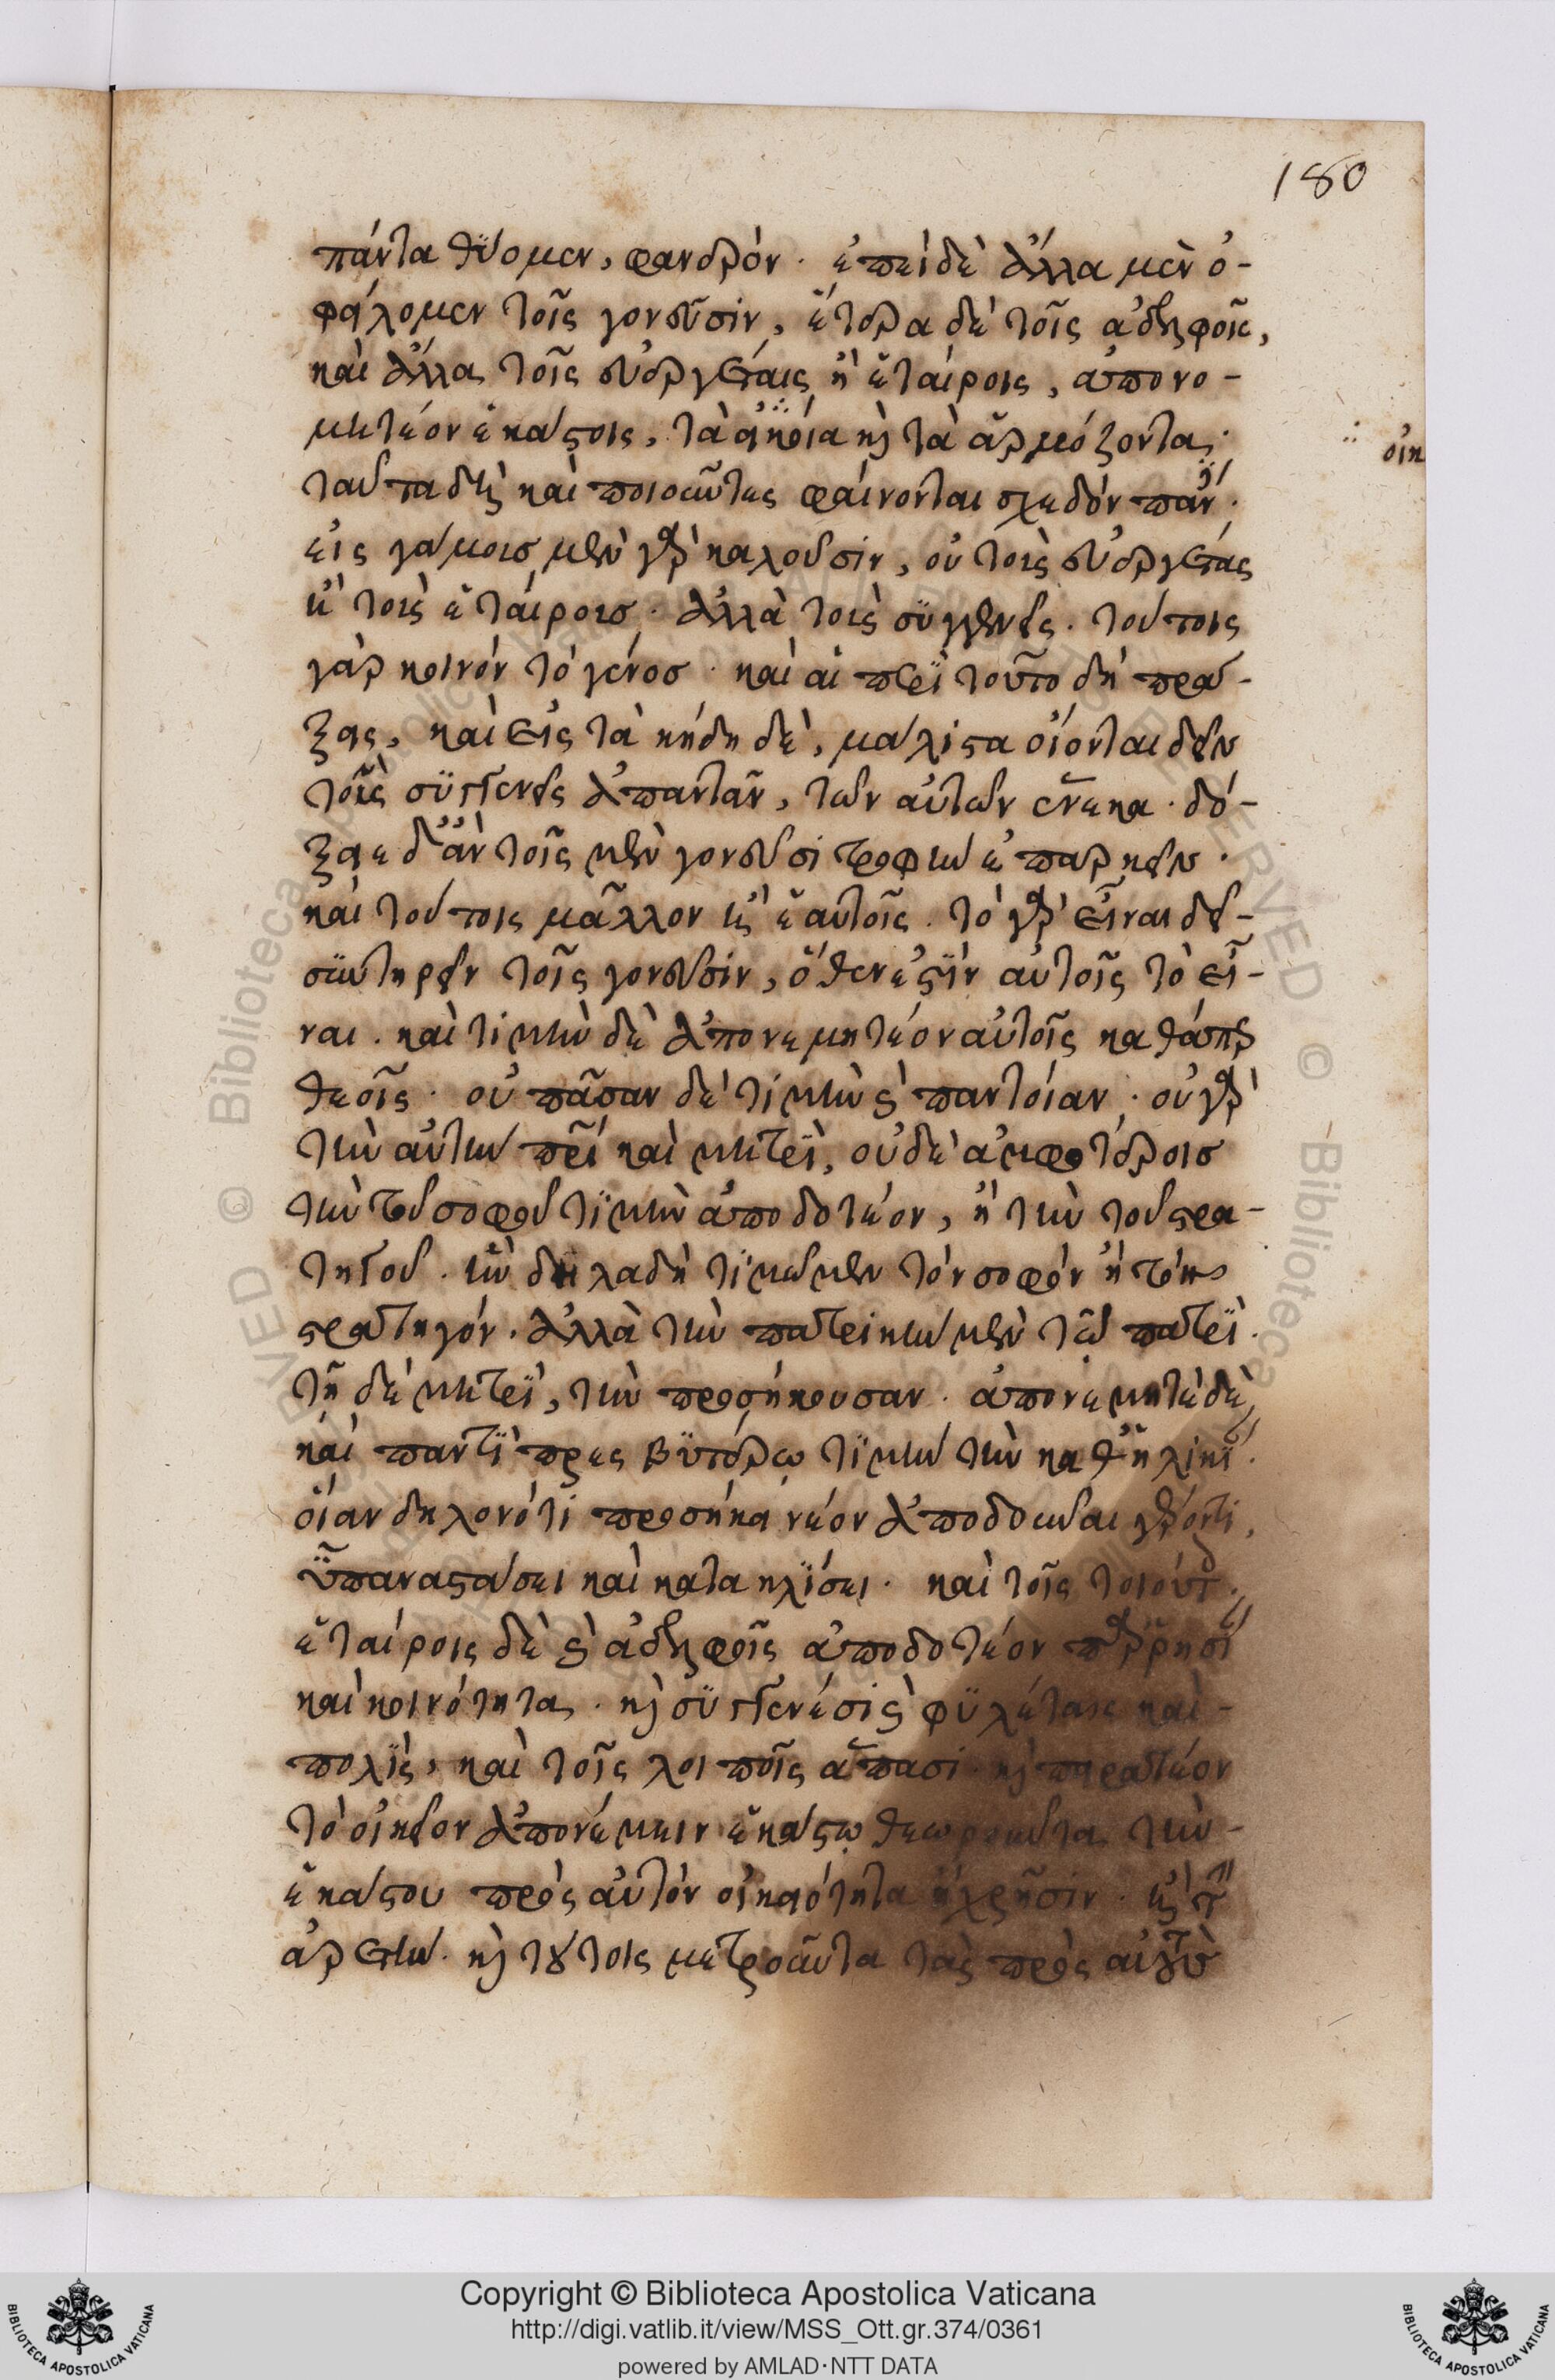 180
πάντα θύομεν, φανερόν. ἐπεὶ δὲ ἄλλα μὲν ὀ-
φείλομεν τοῖς γονεῦσιν, ἕτερα δὲ τοῖς ἀδελφοῖς,
καὶ ἄλλα τοῖς εὐεργέταις ἢ ἑταίροις, ἀπονε-
μητέον ἑκάστοις, τὰ οἰκεῖα κὶ τὰ ἁρμόζοντα.
οἰκ
ταῦτα δὴ καὶ ποιοῦντες φαίνονται σχεδὸν πάν.
εἰς γάμους μὲν γὰρ καλοῦσιν, οὐ τοὺς εὐεργέτας
ἢ τοὺς ἑταίρους. ἀλλὰ τοὺς συγγενεῖς. τούτοις
γὰρ κοινὸν τὸ γένος. καὶ αἱ περὶ τοῦτο δὴ πρά-
ξεις, καὶ εἰς τὰ κήδη δὲ, μάλιστα οἴονται δεῖν
τοὺς συγγενεῖς ἀπαντᾶν, τῶν αὐτῶν ἕνεκα. δό-
ξειε δ' ἂν τοῖς μὲν γονεῦσι τροφὴν ἐπαρκεῖν.
καὶ τούτοις μᾶλλον ἢ ἑαυτοῖς. τὸ γὰρ εἶναι δεῖ
σωτηρεῖν τοῖς γονεῦσιν, ὅθεν ἐστὶν αὐτοῖς τὸ εἶ-
ναι. καὶ τιμὴν δὲ ἀπονεμητέον αὐτοῖς καθάπερ
θεοῖς. οὐ πᾶσαν δὲ τιμὴν κὶ παντοίαν. οὐ γὰρ
τὴν αὐτὴν πρὶ καὶ μητρὶ, οὐδὲ ἀμφοτέροις
τὴν τοῦ σοφοῦ τιμὴν ἀποδοτέον, ἢ τὴν τοῦ στρα-
τηγοῦ. ἣν δηλαδὴ τιμῶμεν τὸν σοφὸν ἢ τὸν
στρατηγόν. ἀλλὰ τὴν πατρικὴν μὲν τῷ πατρὶ.
τῇ δὲ μητρὶ, τὴν προσήκουσαν. ἀπονεμητέ δὲ
καὶ παντὶ πρεσβυτέρῳ τιμὴν τὴν καθ' ἡλικί.
οἵαν δηλονότι προσήκει νέον ἀποδοῦναι γέροντι,
ὑπαναστάσει καὶ κατακλίσει. καὶ τοῖς τοιούτ.
ἑταίροις δὲ κὶ ἀδελφοῖς ἀποδοτέον παρρησί
καὶ κοινότητα. κὶ συγγενέσι κὶ φυλέταις καὶ
πολίς, καὶ τοῖς λοιποῖς ἅπασι. κὶ πειρατέον
τὸ οἰκεῖον ἀπονέμειν ἑκάστῳ θεωροῦντα τὴν
ἑκάστου πρὸς αὐτὸν οἰκειότητα ἢ χρῆσιν. ἢ τ
ἀρετὴν. κὶ τούτοις μετροῦντα τὰς πρὸς αὐτοὺ